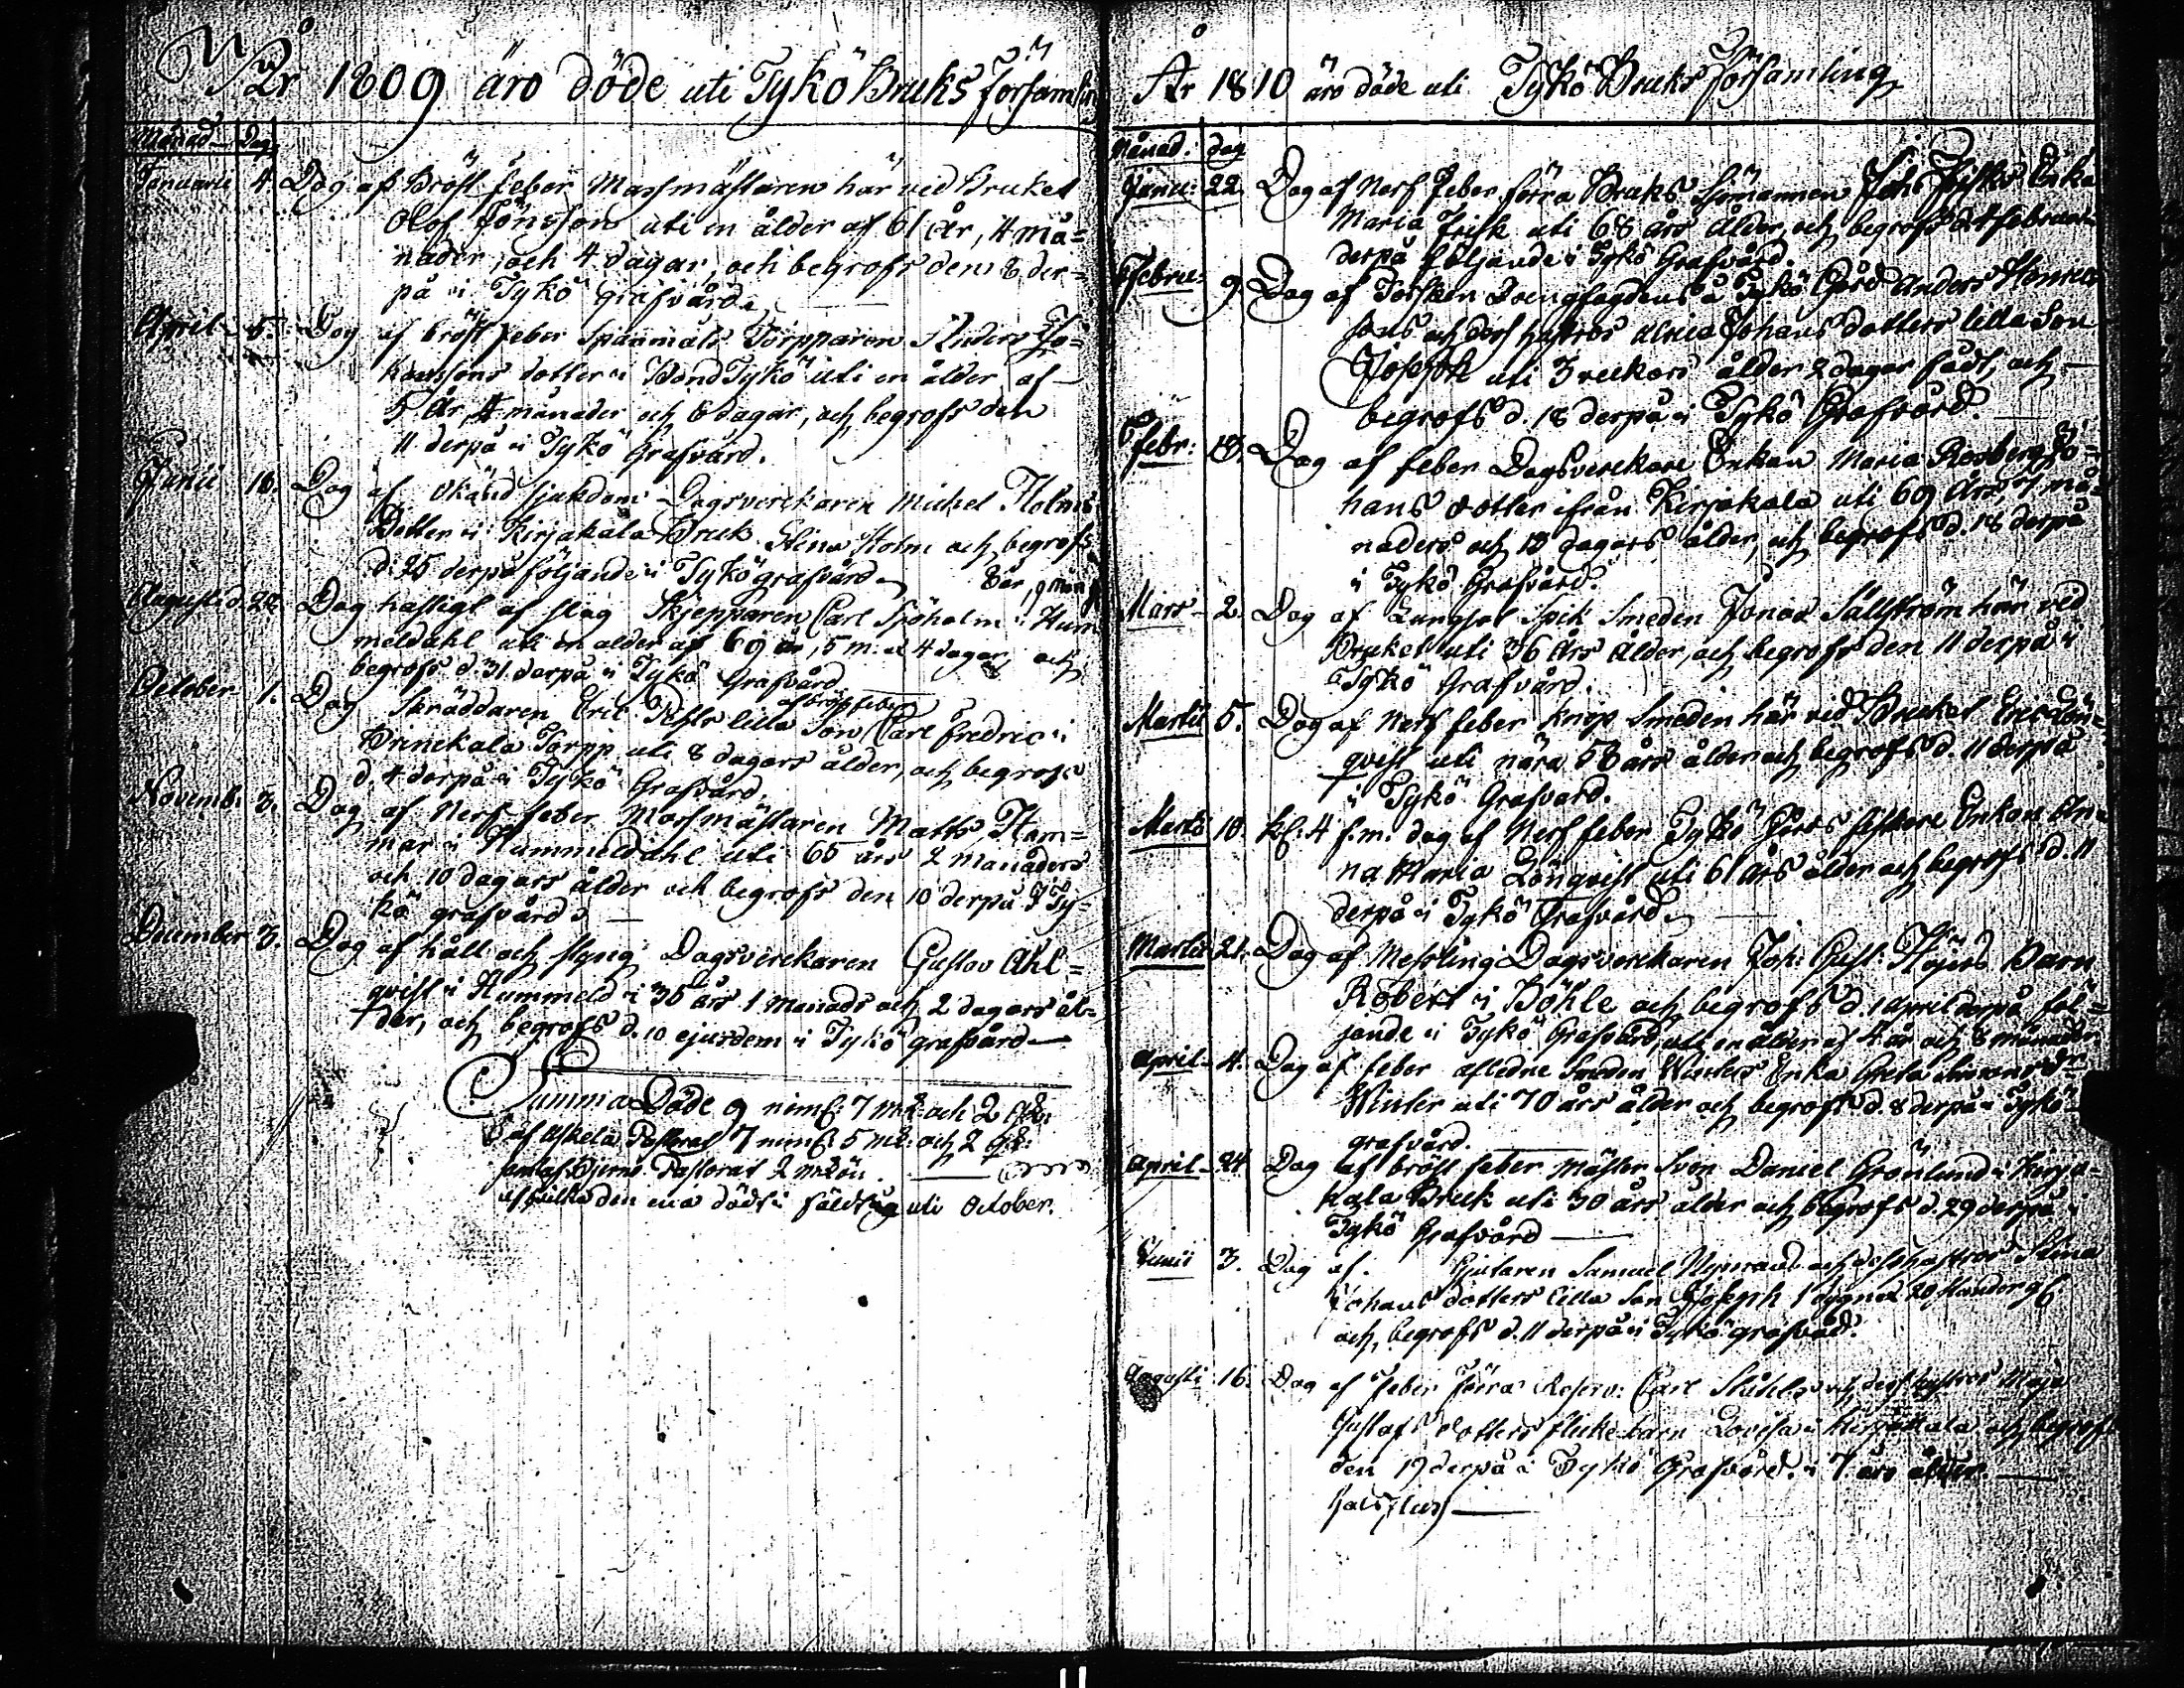 År 1809 äro döde uti Tykö Bruks Församlin
Månad Dag
Januarii 4. Dog af Bröst feber Massmästaren här ved Bruket
Olof Jönsson uti en ålder af 61 År, 4 må=
nader, och 4 dagar, och begrofs den 8 der=
på i Tykö grafvård.
April 5. Dog af bröst feber Spannmåls Torpparen Anders Jo=
hanssons dotter i Bond Tykö uti en ålder af
5 År, 4 månader och 6 dagar, och begrofs den
11 derpå i Tykö Grafvård.
Junii 18. Dog af Okänd sjukdom Dagsverckaren Michel Holms
Dotter i Kirjakala Bruk Helena Holm och begrofs
d. 25 derpå följande i Tykö grafvård 8 år, 9 mån
Augusti d. 22. Dog hastigt af slag Skjepparen Carl Sjöholm i Hum
meldahl uti en ålder af 69 år, 5 m. 4 dagar och
begrofs d. 31. derpå i Tykö Grafvård
af bröstfeber
October 1. Dog Skräddaren Eric lilla Son Carl Fredric i
Torpp uti 8 dagars ålder, och begrofs
d. 4 derpå i Tykö Grafvård.
Novemb. 3. Dog af Nerf feber Masmästaren Matts Ham=
mar i Hummeldahl uti 65 års 2 månaders
och 10 dagars ålder och begrofs den 10 derpå i Ty=
kö grafvård
December 3. Dog af håll och styng Dagsverckaren Gustav Ahl=
qvist i Hummeld i 36 års 1 månads och 2 dagars ål=
der, och begrofs d. 10 ejusdem i Tykö grafvård
Summa Döde 9 nimb: 7 mk: och 2 qk:
af Uskela Pastorat 7 nimb: 5 mk: och 2 qk:
samt af Bjerno Pastorat 2 mkön
af hvilka den ena dödt i fälttåg uti October.
År 1810 äro döde uti Tykö Bruks Församling
Månad. dag
Janu: 22. Dog af Nerf Feber förra Bruks Sjömannen Johs Frisks Enka
Maria Frisk uti 68 års ålder, och begrofs d. 4 februari
derpå följande i Tykö Grafvård.
Febru: 9. Dog af Torsken Drengfogdens å Tykö Gård Anders Henrics
sons och dess hustros Ulrica Johans dotters lilla Son
Joseph uti 3 veckors ålder 2 dagar fådt, och
begrofs d. 18 derpå i Tykö Grafvård.
Febr: 13. Dog af feber Dagsverckare Enkan Maria Rosberg Jo=
hans dotter ifrån Kirjakala uti 69 Års, 7 må=
naders och 13 dagars ålder, och begrofs d. 18 derpå
i Tykö Grafvård.
Mars 2. Dog af Lungsot Spik Smeden Jonas Sällström här ved
Bruket uti 36 Års Ålder, och begrofs den 11 derpå i
Tykö Grafvård.
Martii 5. Dog af Nerf feber knip Smeden här ved Bruket Eric Lön=
qvist uti nära 58 års ålder och begrofs d. 11 derpå
i Tykö Grafvard.
Martii 10. kl. 4 f.m. dog af Nerf feber Tykö Gårds fiskare Enkan An=
na Maria Lönqvist uti 61 års ålder och begrofs d. 11
derpå i Tykö Grafvård
Martii 21. Dog af Messling Dagsverckaren Joh: Gust: Höjers Barn
Robert i Böhle och begrofs d. 1 april derpå föl=
jande i Tykö Grafvård, uti en ålder af 4 år och 8 månader
april 4. Dog af feber afledne Smeden Winters Enka Greta Simonsd:
Winter uti 70 års ålder och begrofs d. 8 derpå i Tykö
grafvård.
april 24 Dog af bröst feber Mäster Sven Daniel Grönlund i Kirja=
kala Bruk uti 30 års ålder och begrofs d. 29 derpå i
Tykö Grafvård
Junii 3. Dog af. Gjutaren Samuel och dess hustros Stina
Johans dotters lilla Son Joseph 1 dygn 20
och begrofs d. 11 derpå i Tykö grafvård.
Augusti 16. Dog af feber förra Reserv: Carl och dess hustros Maja
Gustafs dotters flicke barn Lovisa i Kirjakala och begrofs
den 19 derpå i Tykö Grafvård. i 7 års ålder.